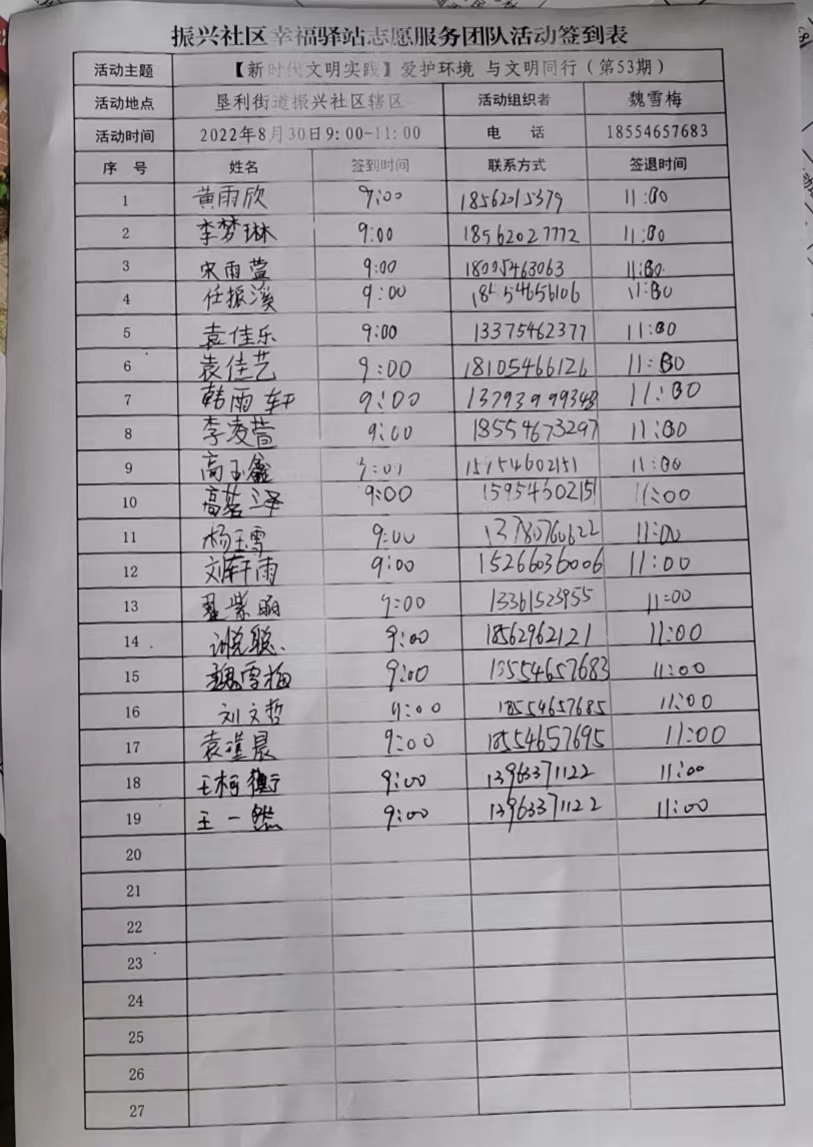 振兴社区幸福驿站志愿服务团队活动签到表
活动主题 【新时代文明实践】爱护环境 与文明同行(第53期)
活动地点 垦利街道振兴社区辖区 活动组织者 魏雪梅
活动时间 2022年8月30日9:00-11:00 电 话 18554657683
序 号 姓名 签到时间 联系方式 签退时间
1 黄雨欣 9:00 18562015379 11:00
2 李梦琳 9:00 18562027772 11:00
3 宋雨萱 9:00 18005463063 11:00
4 任振溪 9:00 18554656106 11:00
5 袁佳乐 9:00 13375462377 11:00
6 袁佳艺 9:00 18105466126 11:00
7 韩雨轩 9:00 13793999348 11:00
8 李凌萱 9:00 18554673297 11:00
9 高玉鑫 9:01 15954602151 11:00
10 高茗泽 9:00 15954602151 11:00
11 杨玉雪 9:00 13780760622 11:00
12 刘轩雨 9:00 15266036006 11:00
13 翟紫 9:00 13361523955 11:00
14 9:00 18562962121 11:00
15 魏雪梅 9:00 18554657683 11:00
16 刘文哲 9:00 18554657685 11:00
17 袁瑾晨 9:00 18554657695 11:00
18 王柯 9:00 13963371122 11:00
19 王一然 9:00 13963371122 11:00
20
21
22
23
24
25
26
27